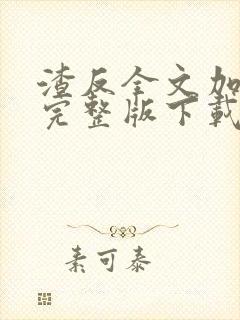 渣反全文加
完整版下载
素可泰